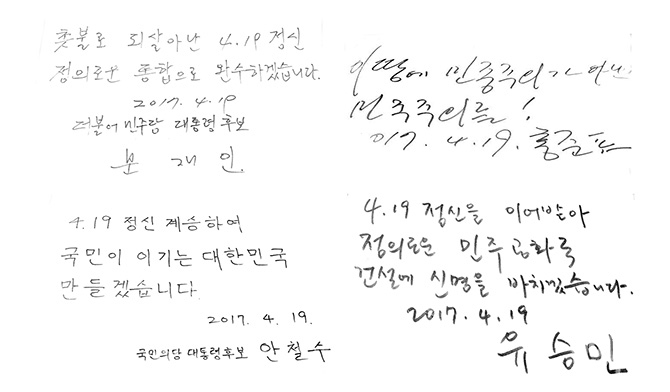 촛불로 되살아난 4.19 정신
정의로운 통합으로 완수하겠습니다.
2017. 4. 19
더불어민주당 대통령후보
문 재 인
이땅에 민중주의가 아닌
민주주의를!
017. 4. 19. 홍준표
4.19 정신 계승하여
국민이 이기는 대한민국
만들겠습니다.
2017. 4. 19.
국민의당 대통령후보 안철수
4.19 정신을 이어받아
정의로운 민주공화국
건설에 신명을 바치겠습니다.
2017. 4. 19
유 승 민